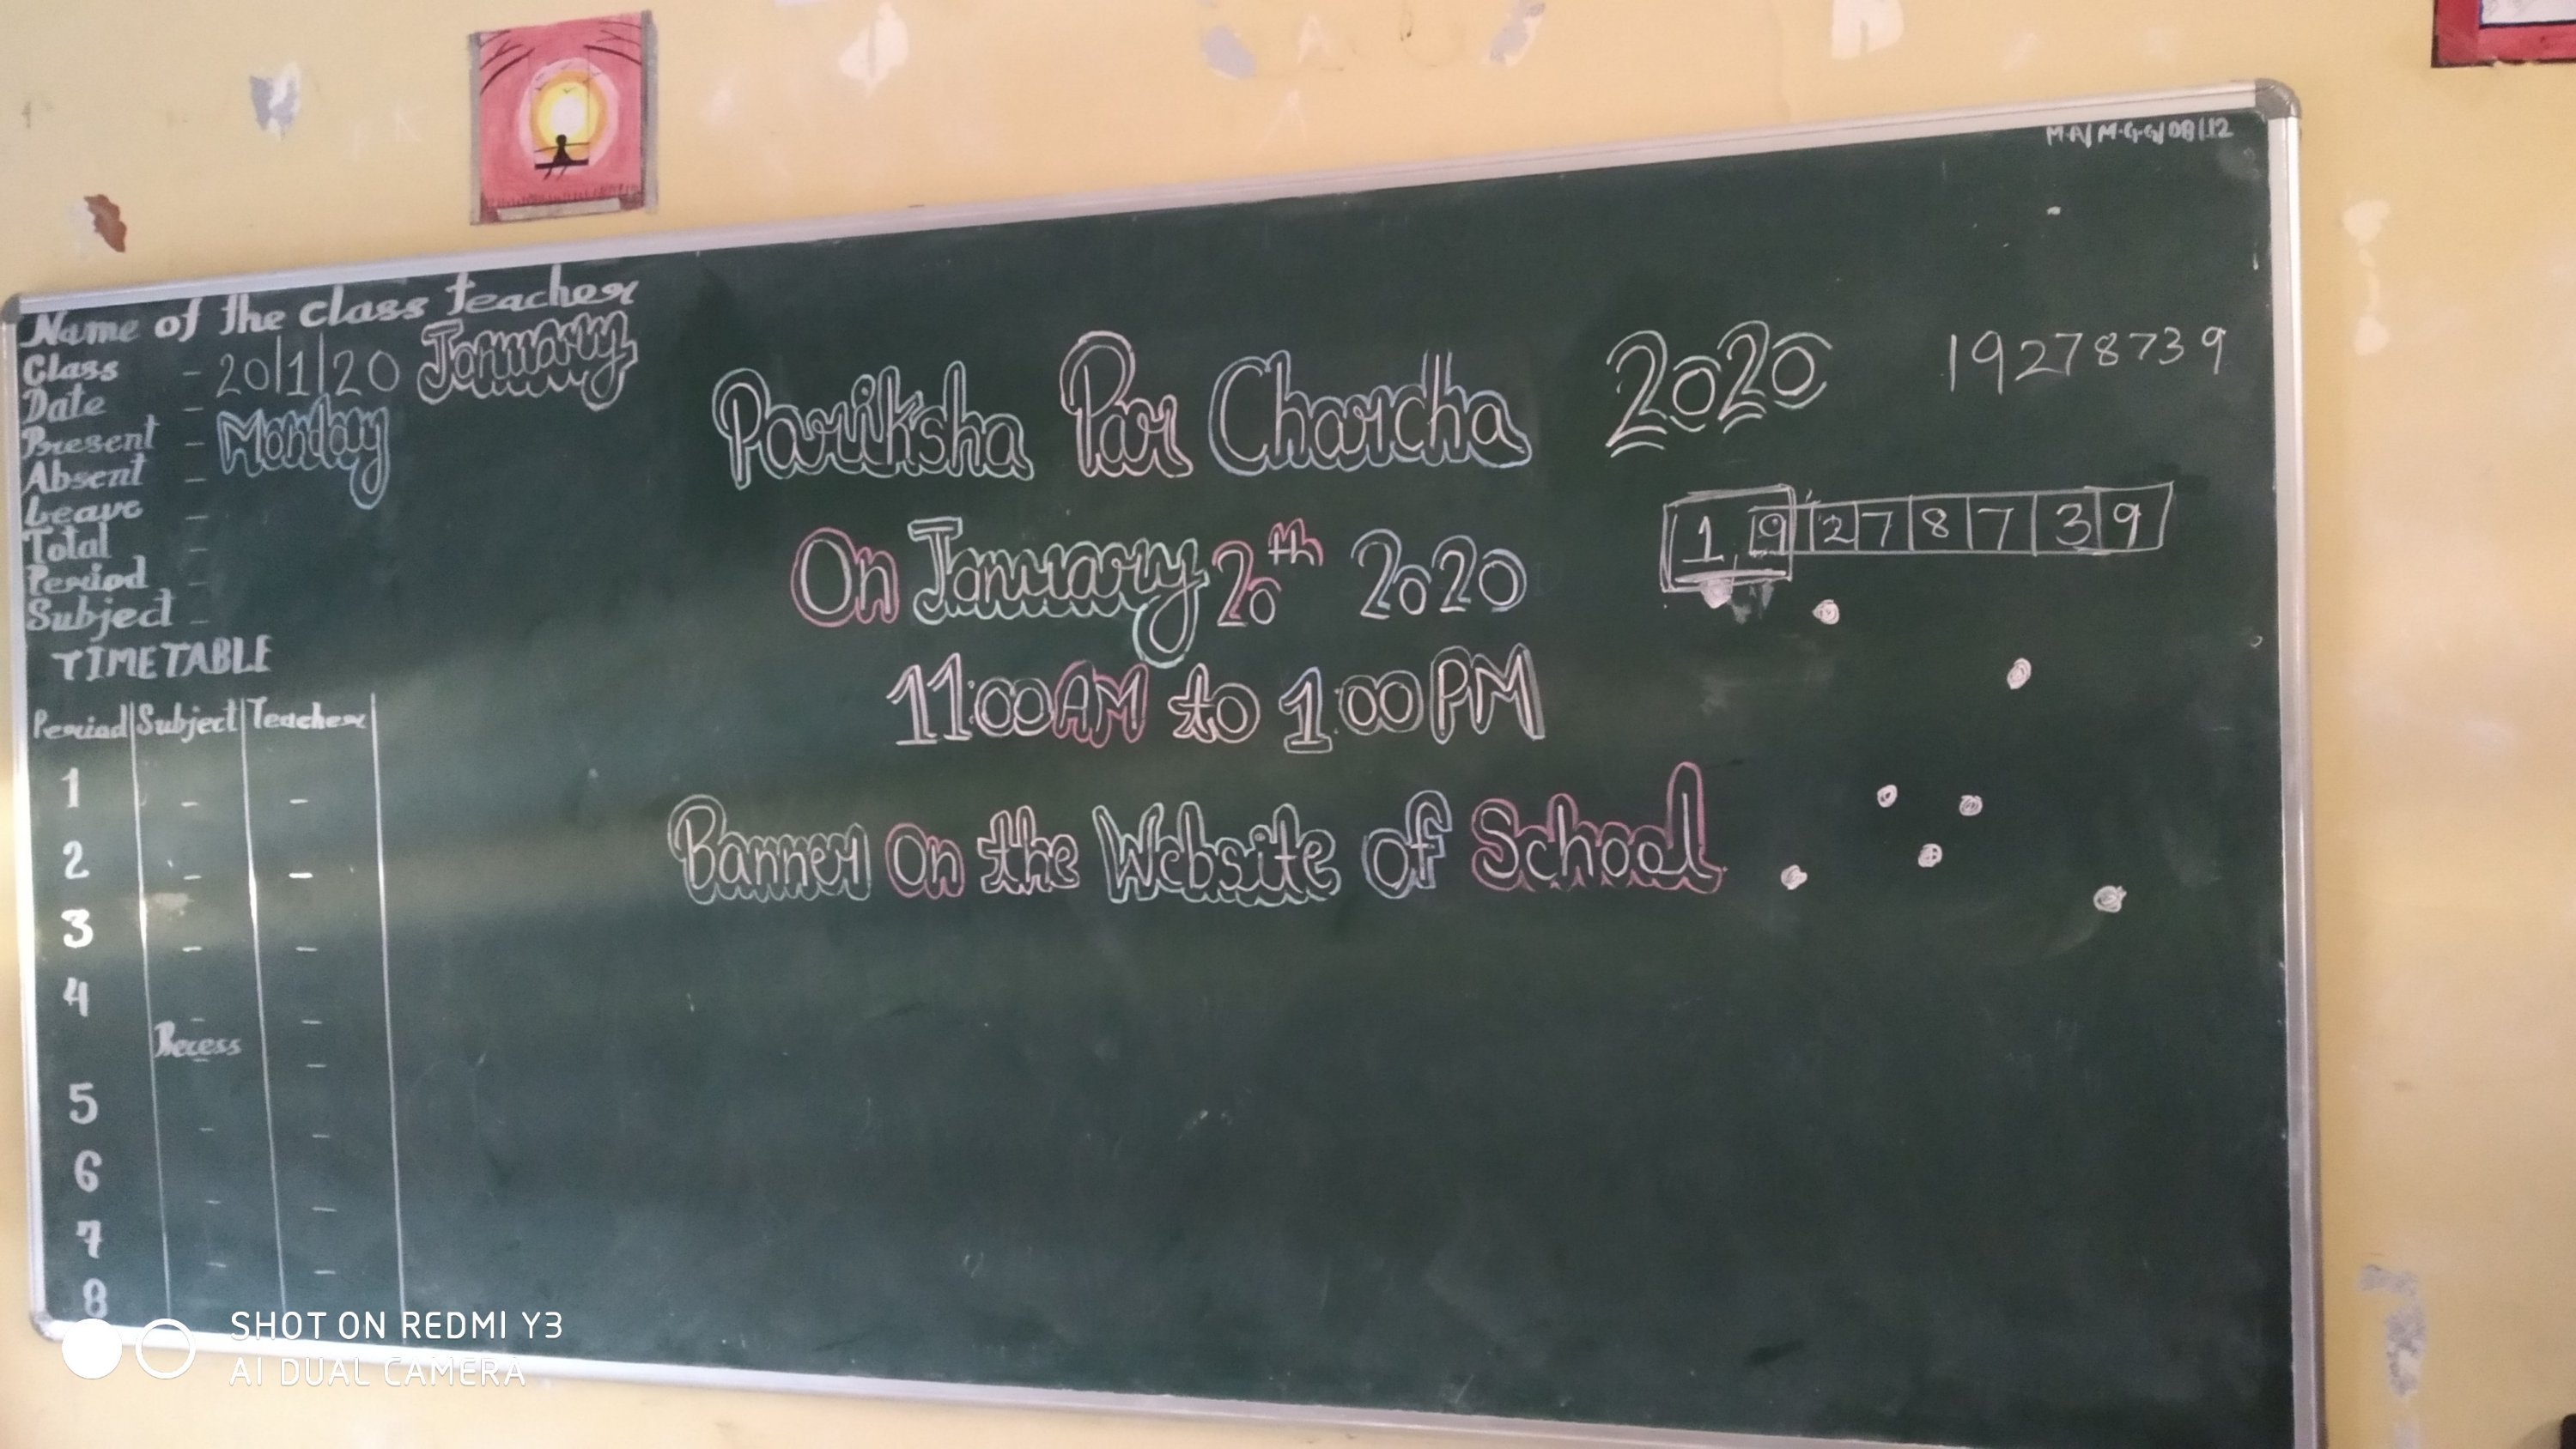 MA/M.G.G/08/12
Name of the class teacher
Class - 20/1/20 January
Date -
Present - Monday
Absent -
Leave -
Total -
Period -
Subject -
TIMETABLE
Period Subject Teacher
1 - -
2 - -
3 - -
4 - -
Recess -
5 - -
6 - -
7 - -
8
Pariksha Par Charcha 2020
On January 20th 2020
11:00AM to 1:00PM
Banner On the Website of School
19278739
1 9 2 7 8 7 3 9
SHOT ON REDMI Y3
AI DUAL CAMERA